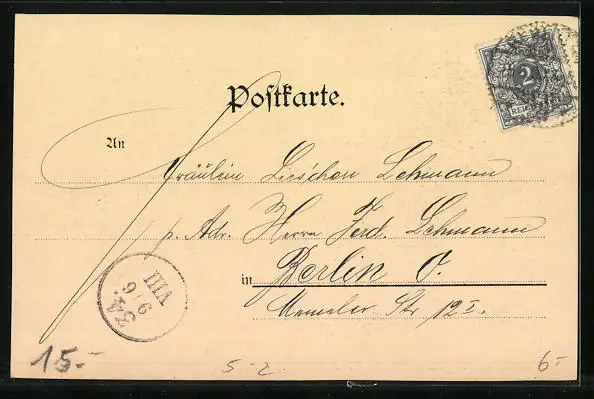 Postkarte.
2
REICH
An
Fräulein Lieschen Lehmann
p. Adr. Herrn Ferd. Lehmann
in Berlin O.
Memeler Str 12 I.
VIII
9/6
34.
15.-
5-2
6-